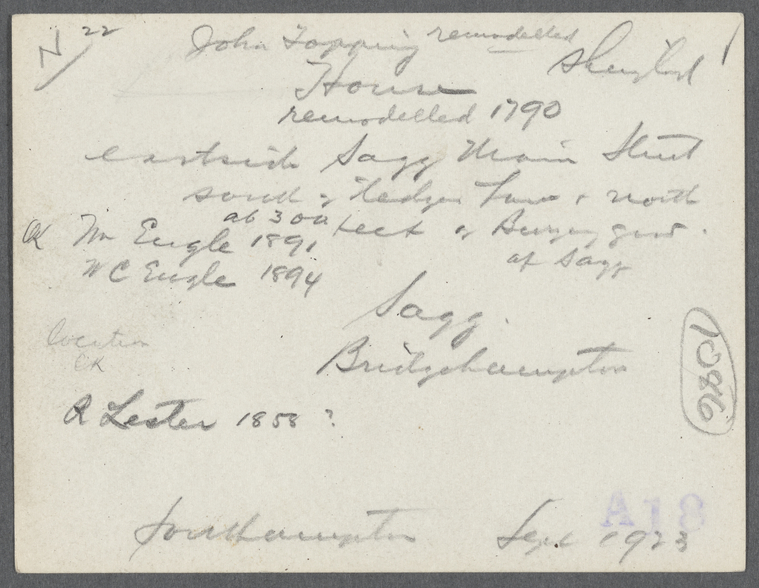 N/ 22
John Topping remodelled
House
remodelled 1790
eastside Sagg Main Street
south of Hedges Lane & north
ab 300 feet of Burying grd.
OK Wm Eugle 1891 of Sagg
W C Eugle 1894
Sagg
location OK
Bridgehampton
1086
R Lester 1858 ?
A18
Southampton Sept 1923